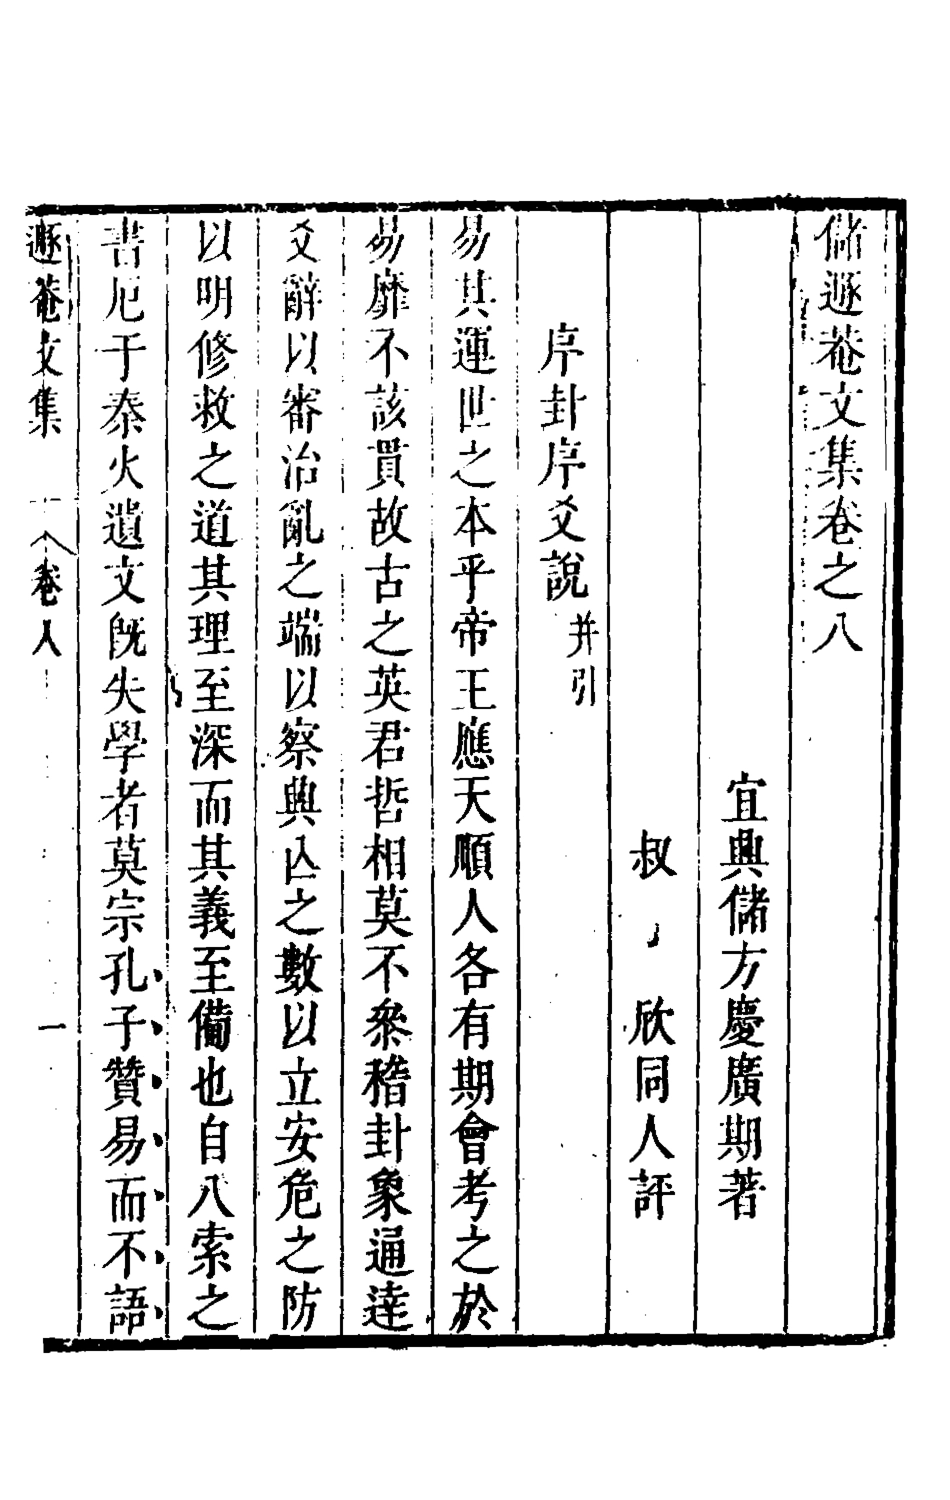 儲遯菴文集卷之八
宜興儲方慶廣期著
叔欣同人評
序卦序爻說并引
易其運世之本乎帝王應天順人各有期會考之於
易靡不該貫故古之英君哲相莫不叅稽卦象通達
爻辭以審治亂之端以察興亾之數以立安危之防
以明修救之道其理至深而其義至備也自八索之
書厄于秦火遺文旣失學者莫宗孔子贊易而不語
遯菴文集
卷八
一